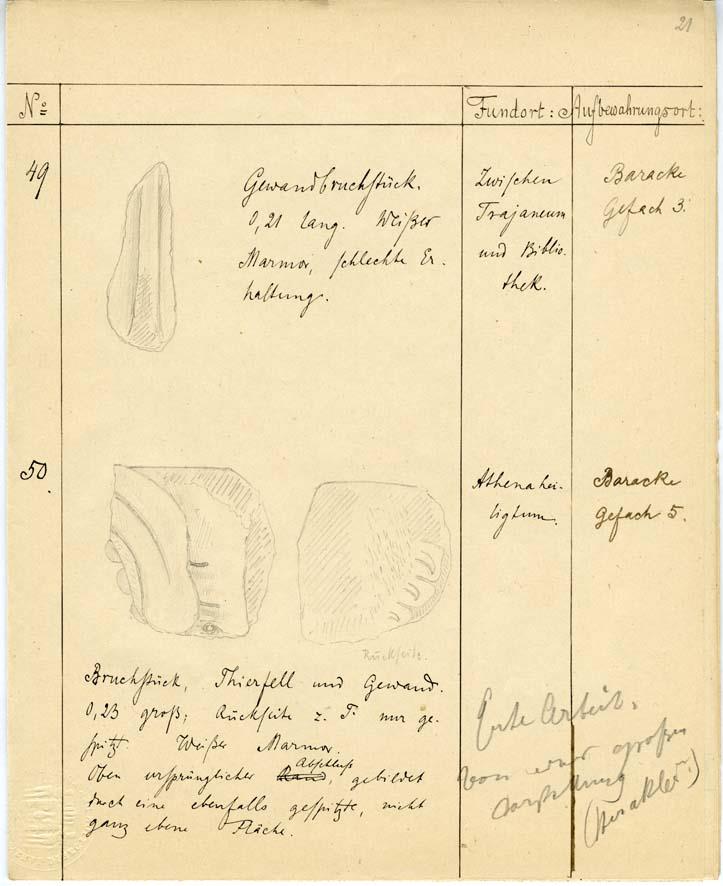 21
No Fundort: Aufbewahrungsort:
49
Gewandbruchstück.
0,21 lang. Weißer
Marmor, schlechte Er-
haltung.
Zwischen
Trajaneum
und Biblio-
thek.
Baracke
Gefach 3.
50.
Athenahei-
ligtum.
Baracke
Gefach 5.
Rückseite.
Bruchstück, Thierfell und Gewand.
0,23 groß; Rückseite z. T. nur ge-
spitzt. Weißer Marmor.
Oben ursprünglicher Rand Abschluss, gebildet
durch eine ebenfalls gespitzte, nicht
ganz ebene Fläche.
Gute Arbeit,
von einer großen
Darstellung
(Herakles?)